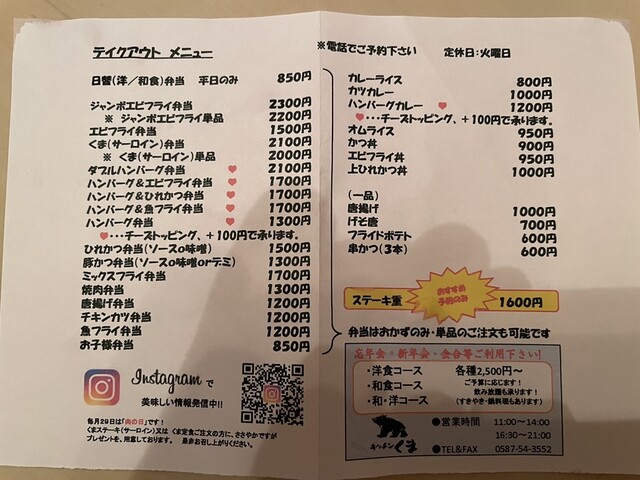 テイクアウト メニュー
※電話でご予約下さい 定休日：火曜日
日替(洋／和食)弁当 平日のみ 850円
ジャンボエビフライ弁当 2300円
※ ジャンボエビフライ単品 2200円
エビフライ弁当 1500円
くま(サーロイン)弁当 2100円
※ くま(サーロイン)単品 2000円
ダブルハンバーグ弁当 ♥ 2100円
ハンバーグ&エビフライ弁当 ♥ 1700円
ハンバーグ&ひれかつ弁当 ♥ 1700円
ハンバーグ&魚フライ弁当 ♥ 1700円
ハンバーグ弁当 ♥ 1300円
♥・・・チーズトッピング、＋100円で承ります。
ひれかつ弁当(ソースo味噌) 1500円
豚かつ弁当(ソースo味噌orデミ) 1300円
ミックスフライ弁当 1700円
焼肉弁当 1300円
唐揚げ弁当 1200円
チキンカツ弁当 1200円
魚フライ弁当 1200円
お子様弁当 850円
Instagramで
美味しい情報発信中!!
毎月29日は「肉の日」です!
くまステーキ(サーロイン)又は くま定食ご注文の方に、ささやかですが
プレゼントを、用意しております。 是非お召し上がりください。
カレーライス 800円
カツカレー 1000円
ハンバーグカレー ♥ 1200円
♥・・・チーズトッピング、＋100円で承ります。
オムライス 950円
かつ丼 900円
エビフライ丼 950円
上ひれかつ丼 1000円
(一品)
唐揚げ 1000円
げそ唐 700円
フライドポテト 600円
串かつ(3本) 600円
ステーキ重 おすすめ 予約のみ 1600円
弁当はおかずのみ・単品のご注文も可能です
忘年会・新年会・会合等ご利用下さい!
・洋食コース 各種2,500円～
・和食コース ご予算に応じます!
飲み放題も承ります!
・和・洋コース (すきやき・鍋料理もあります)
キッチンくま
●営業時間 11:00～14:00
16:30～21:00
●TEL&FAX 0587-54-3552